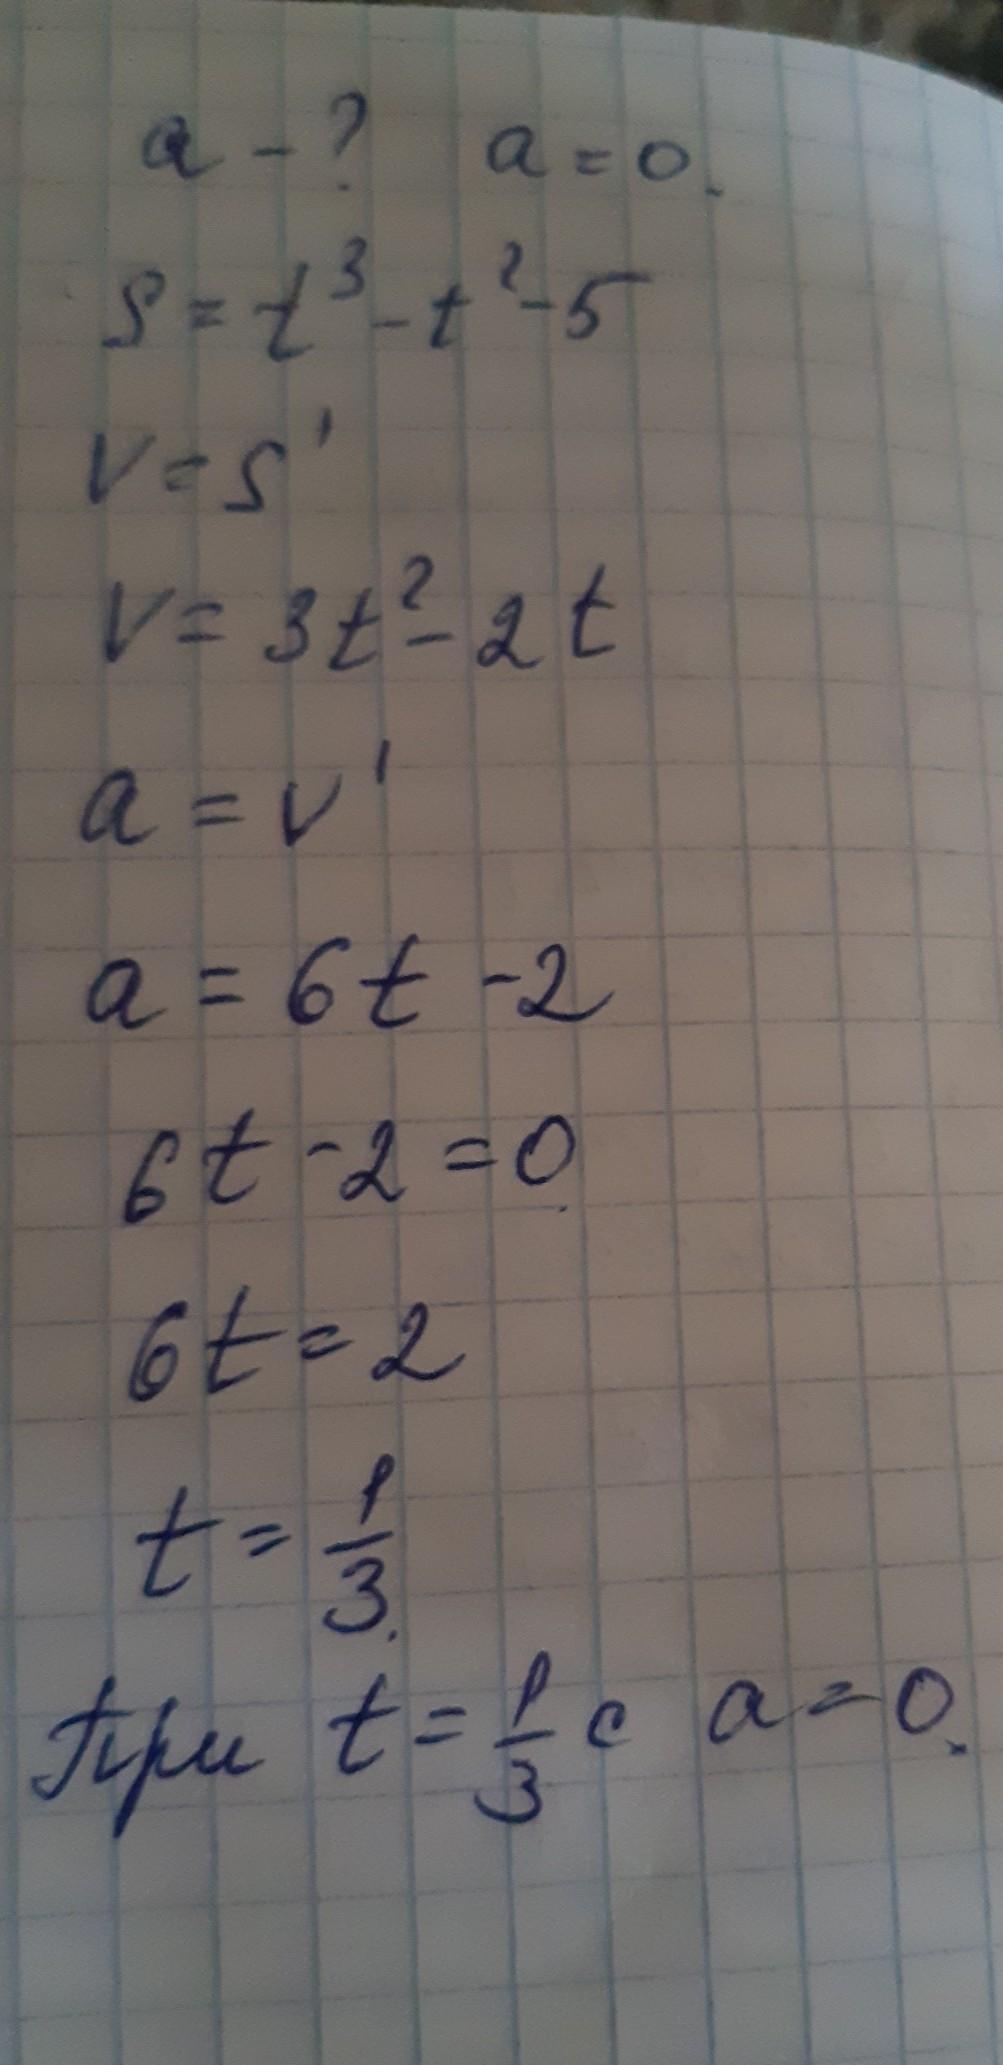 a - ? a = 0.
S = t³ - t² - 5
V = S'
V = 3t² - 2t
a = v'
a = 6t - 2
6t - 2 = 0.
6t = 2
t = 1/3.
При t = 1/3 с a = 0.